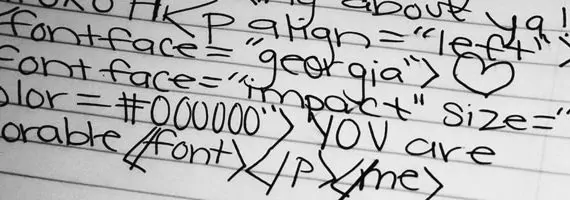 about ya!
<P align="left">
<font face="georgia">♡
font face="impact" size="
olor=#000000">YOU are
orable</font></P></me>